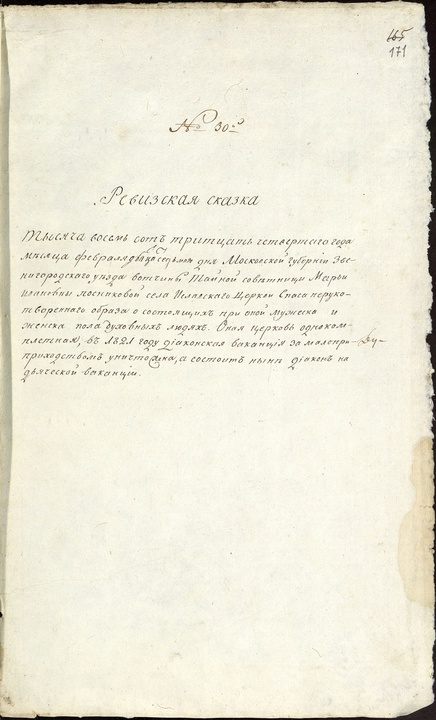 165
171
№ 30й
Ревизская сказка
Тысяча восемь сотъ тритцать четвертаго года
мѣсяца февраля седьм дня Московской губернiи Зве-
нигородскаго уѣзда вотчины Тайной совѣтницы Марьи
Ивановны Посниковой села Церкви Спаса неруко-
твореннаго образа о состоящихъ при оной мужеска и
женска пола духовныхъ людяхъ. Оная церковь одноком-
плетная, въ 1821 году дiаконская ваканцiя за малопри-
приходствомъ уничтожена, а состоитъ нынѣ дiаконъ на
дьяческой ваканцiи.